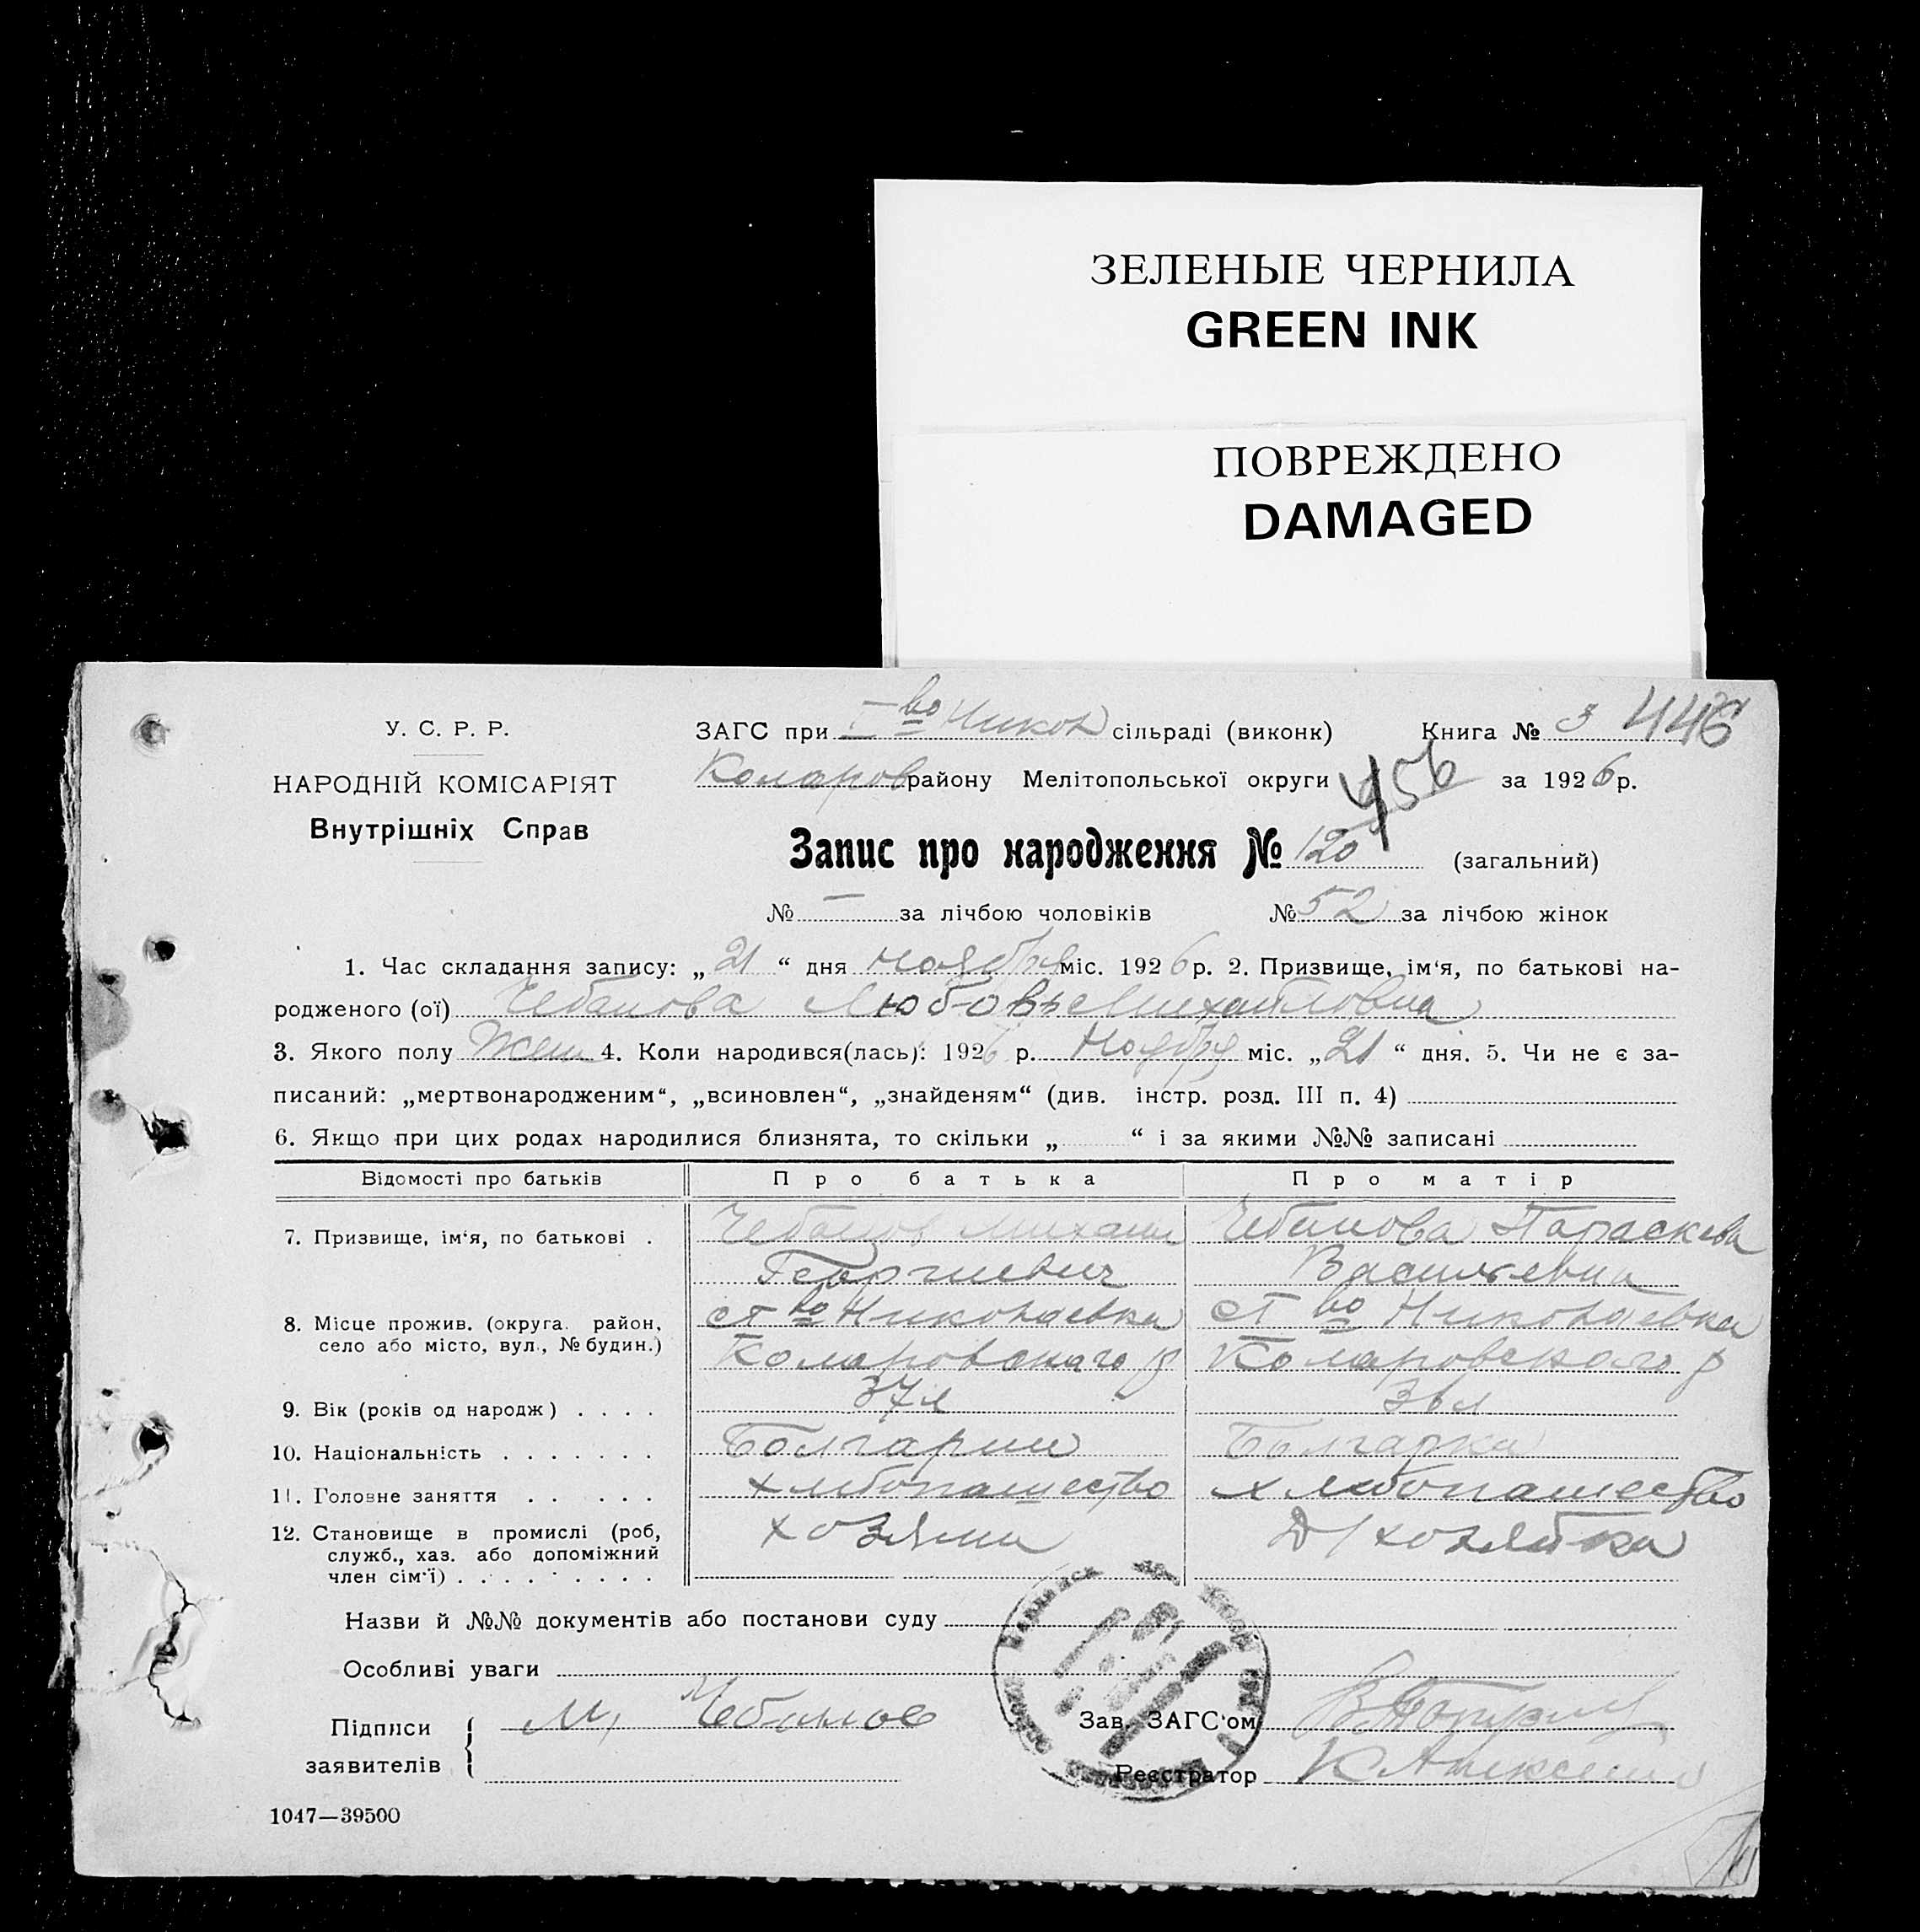 ЗЕЛЕНЫЕ ЧЕРНИЛА
GREEN INK
ПОВРЕЖДЕНО
DAMAGED
У. С. Р. Р.
НАРОДНІЙ КОМІСАРІЯТ
Внутрішніх Справ
ЗАГС при I во Никол сільраді (виконк) Книга № 3 446
Коларов району Мелітопольської округи 456 за 1926 р.
Запис про народження № 120 (загальний)
№ — за лічбою чоловіків № 52 за лічбою жінок
1. Час складання запису: „21“ дня Ноября міс. 1926 р. 2. Призвище, ім‘я, по батькові на-
родженого (ої) Чебанова Любовь Михайловна
3. Якого полу Жен 4. Коли народився(лась): 1926 р. Ноября міс. „21“ дня. 5. Чи не є за-
писаний: „мертвонародженим“, „всиновлен“, „знайденям“ (див. інстр. розд. III п. 4)
6. Якщо при цих родах народилися близнята, то скільки „ “ і за якими №№ записані
Відомості про батьків Про батька Про матір
7. Призвище, ім‘я, по батькові . Чебанов Михаил Чебанова Параскева
Георгиевич Васильевна
8. Місце прожив. (округа, район, с I во Николаевка с I во Николаевка
село або місто, вул., № будин.) Коларовского р Коларовского р
9. Вік (років од народж) . . . . 37 л 36 л
10. Національність . . . . . . . Болгарин Болгарка
11. Головне заняття . . . . . хлебопашество хлебопашество
12. Становище в промислі (роб, хозяин Д/хозяйка
служб., хаз. або допоміжний
член сім‘ї) . . . . . . . . .
Назви й №№ документів або постанови суду
Особливі уваги
Підписи М, Чебанов Зав. ЗАГС‘ом
заявителів Реєстратор
1047—39500